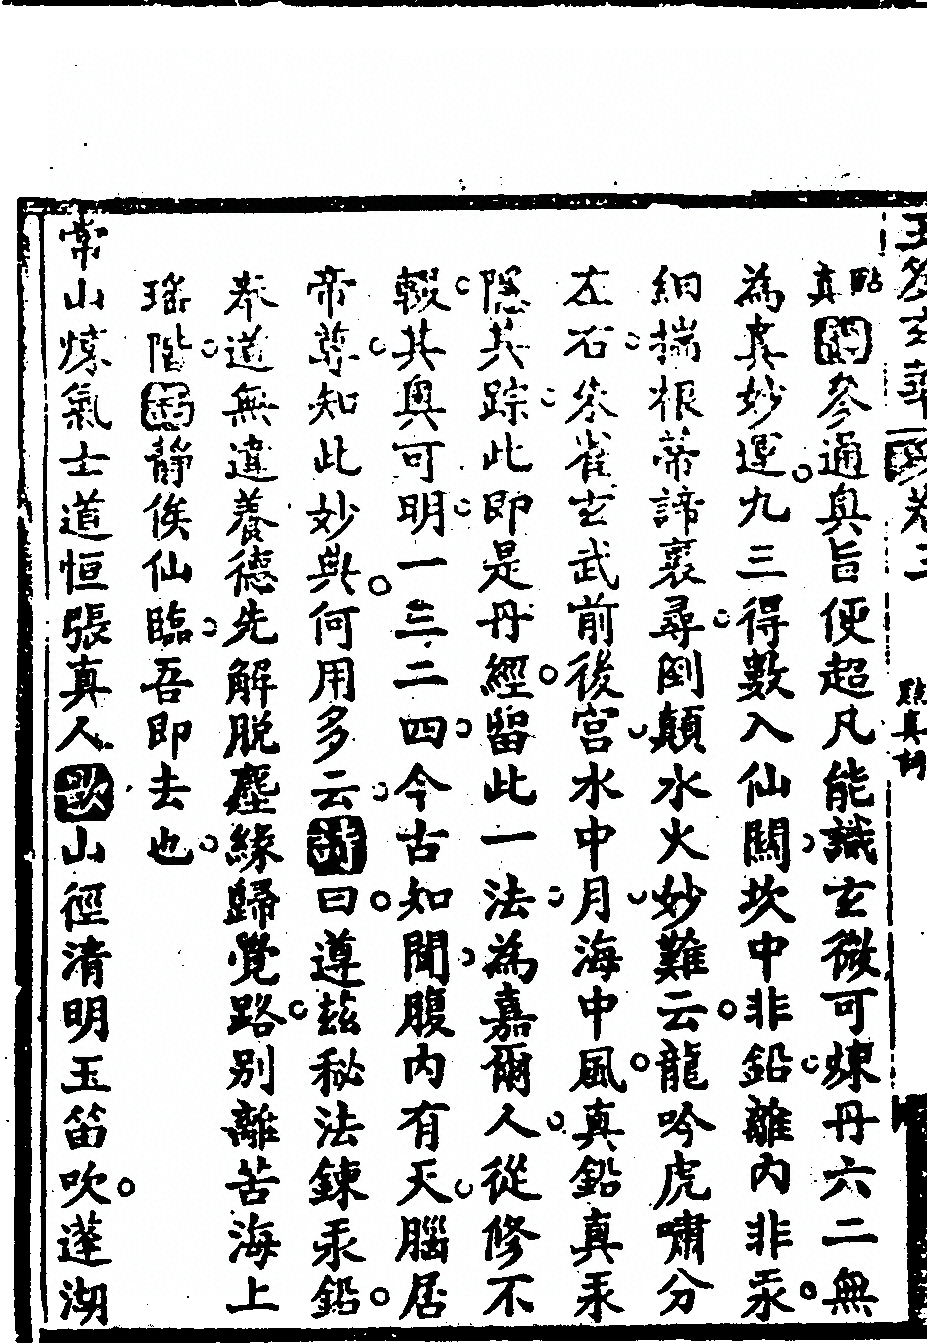 點真〇參通奥旨便超凡能識玄微可煉丹六二無
為真妙運九三得數入仙關坎中非鉛離內非汞
細揣根蒂諦裏尋倒顛水火妙難云龍吟虎嘯分
左右朱雀玄武前後宮水中月海中風真鉛真汞
隱其踪此即是丹經留此一法為嘉爾人從修不
輟其奥可明一三二四今古知聞腹內有天腦居
帝尊知此妙典何用多云詩曰遵茲秘法鍊汞鉛
奉道無違養德先解脱塵緣歸覺路別離苦海上
瑤階 靜俟仙臨吾即去也
常山煉氣士道恒張真人歌山徑清明玉笛吹蓬湖